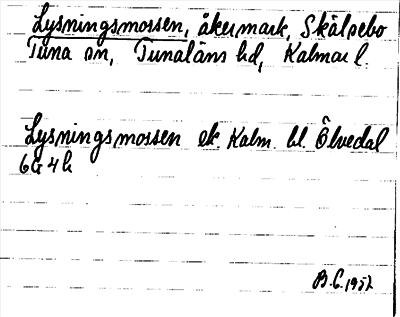 Lysningsmossen, åkermark, Skälsebo
Tuna sn, Tunaläns hd, Kalmar l.
Lysningsmossen ek. Kalm. bl. Ölvedal
6G4h
B.C. 1952